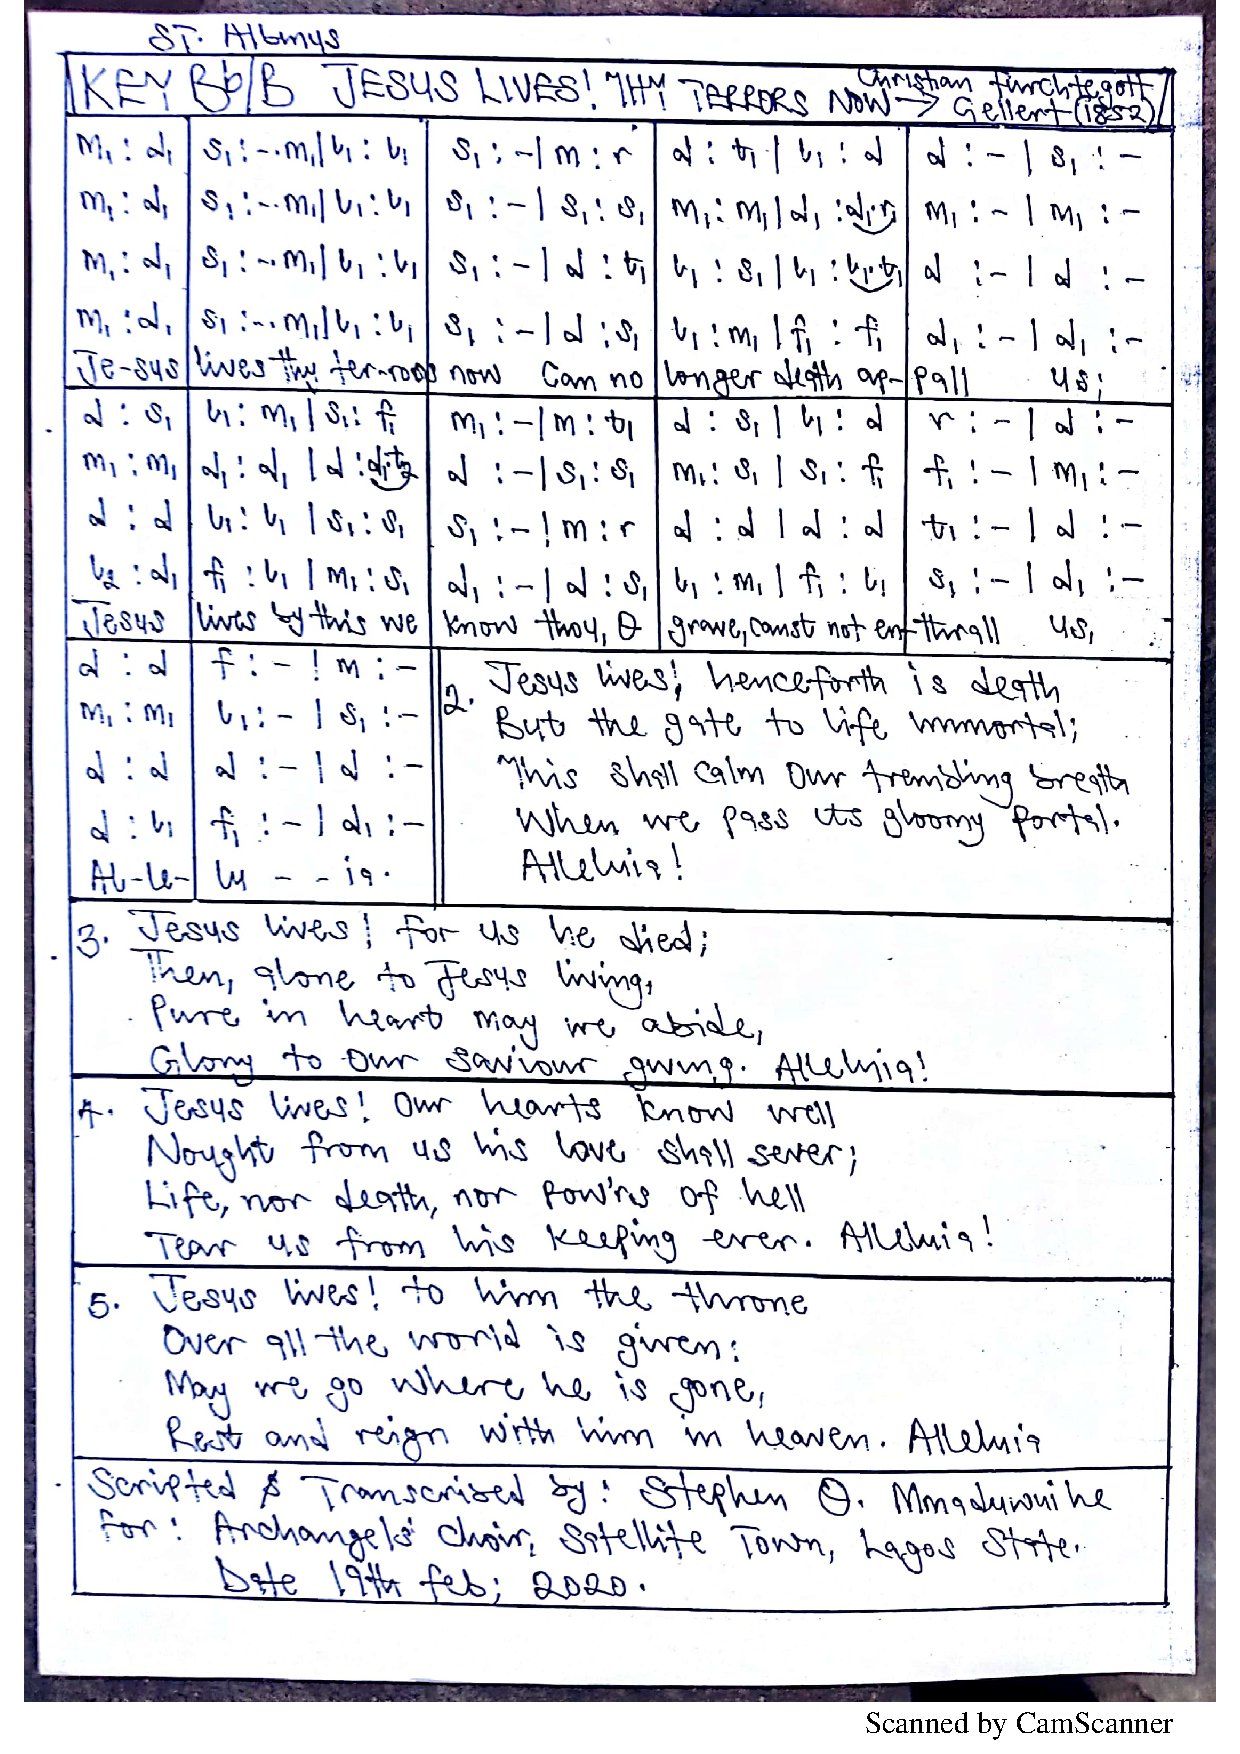 ST. Albinus
KEY Bb/B JESUS LIVES! THY TERRORS NOW → Christian furchtegott Gellert (1852)
m₁ : d₁ | s₁ : -.m₁ | l₁ : l₁ | s₁ : - | m : r | d : t₁ | l₁ : d | d : - | s₁ : -
m₁ : d₁ | s₁ : -.m₁ | l₁ : l₁ | s₁ : - | s₁ : s₁ | m₁ : m₁ | d₁ : d₁.r₁ | m₁ : - | m₁ : -
m₁ : d₁ | s₁ : -.m₁ | l₁ : l₁ | s₁ : - | d : t₁ | l₁ : s₁ | l₁ : l₁.t₁ | d : - | d : -
m₁ : d₁ | s₁ : -.m₁ | l₁ : l₁ | s₁ : - | d : s₁ | l₁ : m₁ | f₁ : f₁ | d₁ : - | d₁ : -
Je-sus lives thy ter-roos now Can no longer death ap-pall us;
d : s₁ | l₁ : m₁ | s₁ : f₁ | m₁ : - | m : t₁ | d : s₁ | l₁ : d | r : - | d : -
m₁ : m₁ | d₁ : d₁ | d : d₁.t₂ | d : - | s₁ : s₁ | m₁ : s₁ | s₁ : f₁ | f₁ : - | m₁ : -
d : d | l₁ : l₁ | s₁ : s₁ | s₁ : - ! m : r | d : d | d : d | t₁ : - | d : -
l₂ : d₁ | f₁ : l₁ | m₁ : s₁ | d₁ : - | d : s₁ | l₁ : m₁ | f₁ : l₁ | s₁ : - | d₁ : -
Jesus lives by this we know thou, O grave, canst not en-thrall us,
d : d | f : - ! m : -
m₁ : m₁ | l₁ : - | s₁ : -
d : d | d : - | d : -
d : l₁ | f₁ : - | d₁ : -
Al-le- lu - - ia.
2. Jesus lives! henceforth is death
But the gate to life immortal;
This shall calm our trembling breath
When we pass its gloomy portal.
Alleluia!
3. Jesus lives! for us he died;
Then, alone to Jesus living,
Pure in heart may we abide,
Glory to our saviour giving. Alleluia!
4. Jesus lives! Our hearts know well
Nought from us his love shall sever;
Life, nor death, nor pow'rs of hell
Tear us from his keeping ever. Alleluia!
5. Jesus lives! to him the throne
Over all the world is given:
May we go where he is gone,
Rest and reign with him in heaven. Alleluia
Scripted & Transcribed by: Stephen O. Mmaduwuihe
for: Archangels' choir, Satellite Town, Lagos State.
Date 19th feb; 2020.
Scanned by CamScanner